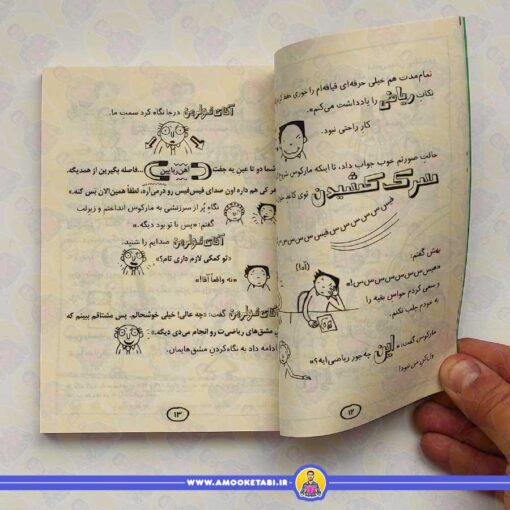 تمام‌مدت هم خیلی حرفه‌ای قیافه‌ام را جوری حفظ
نکات ریاضی را یادداشت می‌کنم».
کار راحتی نبود.
حالت صورتم خوب جواب داد، تا اینکه مارکوس شروع
سرک کشیدن توی کاغذ
فیس س س س س فیس س س س س
بهش گفتم:
«هیس س س س س س س س!»
(آقا)
و سعی کردم حواس بقیه را
به خودم جلب نکنم.
مارکوس گفت: «این چه‌جور ریاضی‌ایه؟»
۱۲
آقای فولرمن درجا نگاه کرد سمت ما.
شما دو تا عین یه جفت آهن‌ربایین ...فاصله بگیرین از همدیگه.
هر کی هم داره اون صدای فیس‌فیس رو درمی‌آره، لطفاً همین‌الان بس کنه.»
نگاهِ پُر از سرزنشی به مارکوس انداختم و زیرلب
گفتم: «پس با تو بود دیگه.»
آقای فولرمن صدایم را شنید.
«تو کمکی لازم داری تام؟»
«نه واقعاً آقا!»
آقای فولرمن گفت: «چه عالی! خیلی خوشحالم. پس مشتاقم ببینم که
مشق‌های ریاضی‌ت رو انجام می‌دی دیگه.»
ادامه داد به نگاه‌کردن مشق‌هایمان.
۱۳
WWW.AMOOKETABI.IR